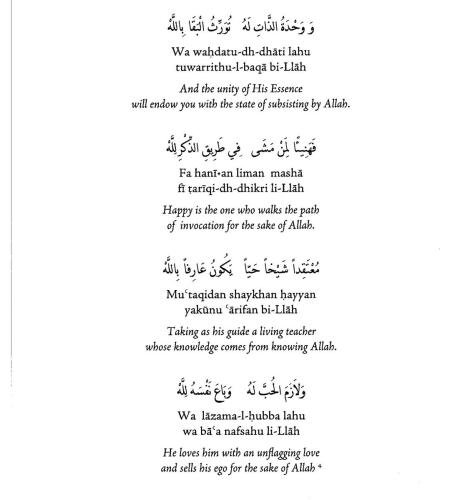 وَ وَحْدَةُ الذَّاتِ لَهُ   تُوَرِّثُ الْبَقَا بِاللَّهْ
Wa waḥdatu-dh-dhāti lahu
tuwarrithu-l-baqā bi-Llāh
And the unity of His Essence
will endow you with the state of subsisting by Allah.
فَهَنِيـًٔا لِمَنْ مَشَى   فِي طَرِيقِ الذِّكْرِ لِلَّهْ
Fa hanī•an liman mashā
fī ṭarīqi-dh-dhikri li-Llāh
Happy is the one who walks the path
of invocation for the sake of Allah.
مُعْتَقِداً شَيْخاً حَيّاً   يَكُونُ عَارِفاً بِاللَّهْ
Muʿtaqidan shaykhan ḥayyan
yakūnu ʿārifan bi-Llāh
Taking as his guide a living teacher
whose knowledge comes from knowing Allah.
وَلاَزَمَ الْحُبَّ لَهُ   وَبَاعَ نَفْسَهُ لِلَّهْ
Wa lāzama-l-ḥubba lahu
wa bāʿa nafsahu li-Llāh
He loves him with an unflagging love
and sells his ego for the sake of Allah ⁴